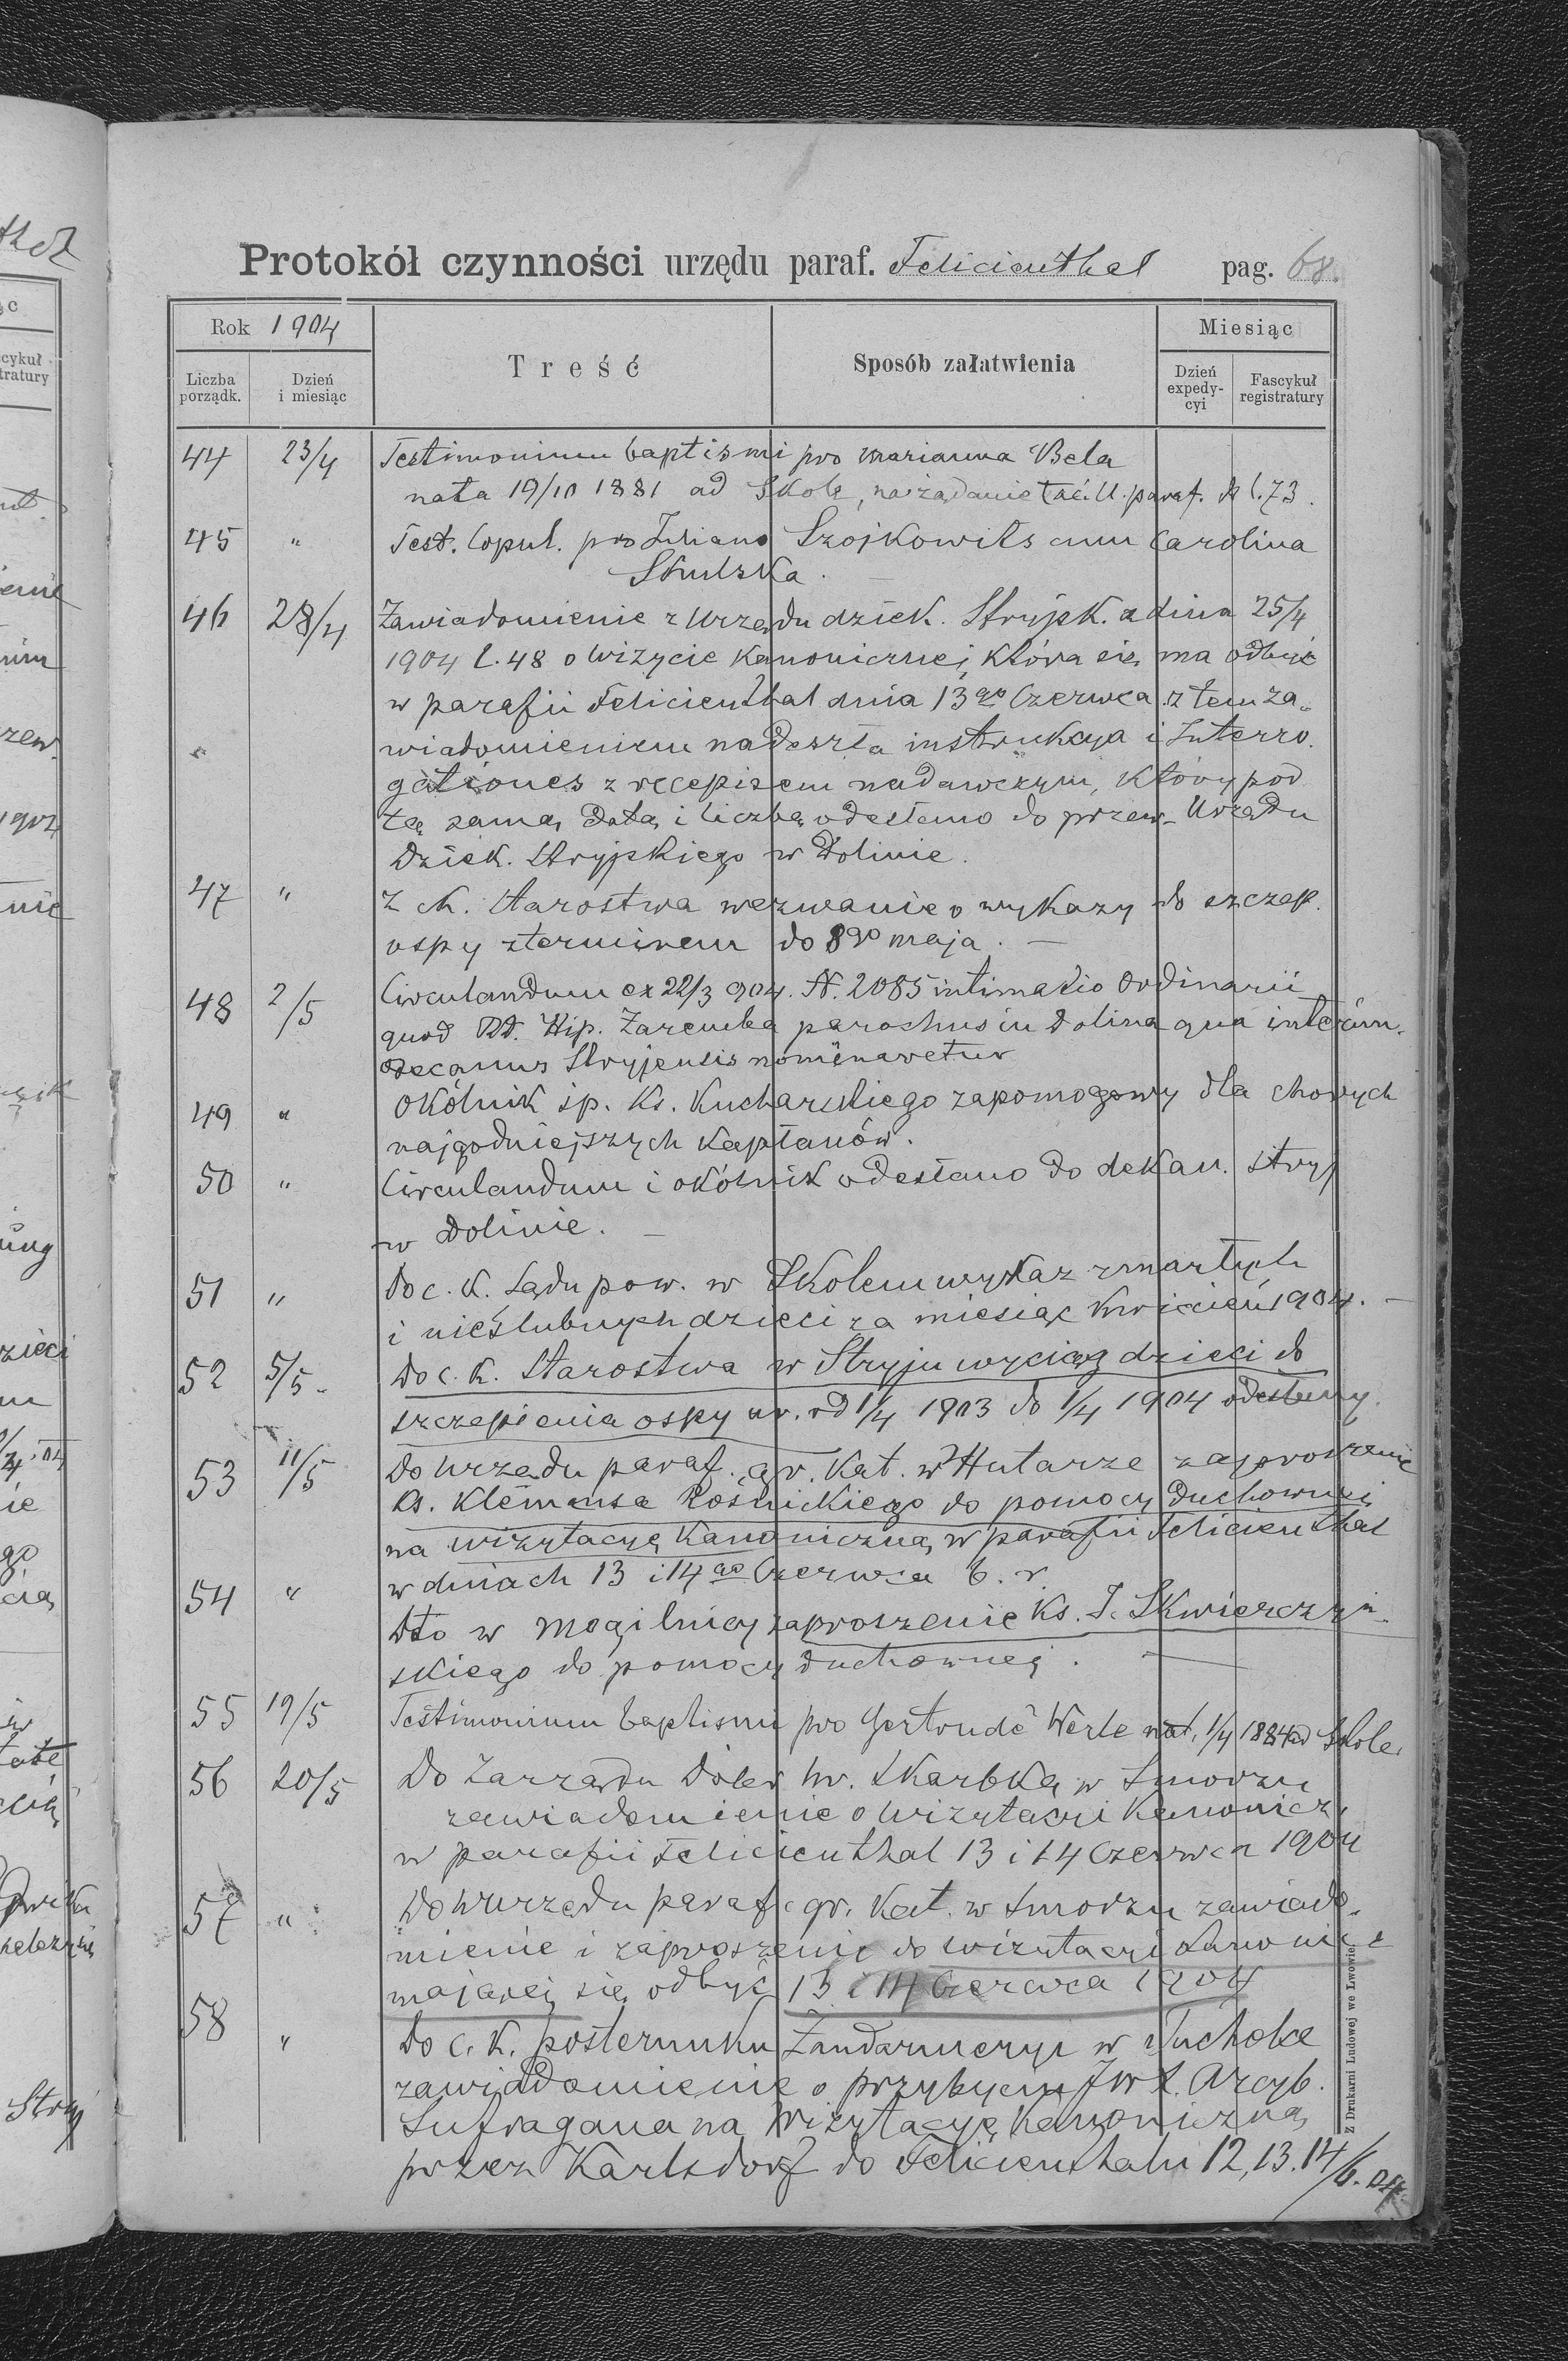 Protokół czynności urzędu paraf. Felicienthal pag. 68.
Rok 1904
Treść
Sposób załatwienia
Miesiąc
Liczba porządk.
Dzień i miesiąc
Dzień expedy-cyi
Fascykuł registratury
44 23/4 Testimonium baptismi pro Marianna Bela
nata 19/10 1881 ad Skole, na żądanie U. paraf. l. 73.
45 " Test. Copul. pro Juliano Szojkowits cum Carolina
Skulska.
46 28/4 Zawiadomienie z Urzędu dziek. Stryjsk. z dnia 25/4
1904 l. 48 o wizycie kanonicznej, która się ma odbyć
w parafii Felicienthal dnia 13go Czerwca. z tem za-
wiadomieniem nadeszła instrukcya i Interro
gationes z recepisem nadawczym, który pod
tą samą datą i liczbą odesłano do przew. Urzędu
Dziek. Stryjskiego w Dolinie.
47 " Z ck. Starostwa wezwanie o wykazy do szczep.
ospy z terminem do 8go maja. —
48 2/5 Circulandum ex 22/3 904. N. 2085 intimatio Ordinarii
quod Hip. Zaremba parochus in Dolina qua interim.
Decanus Stryjensis nominaretur
49 " Okólnik śp. Ks. Kucharskiego zapomogowy dla chorych
najgodniejszych Kapłanów.
50 " Circulandum i okólnik odesłano do dekan. Stryj
w Dolinie. —
51 " Do c. k. Sądu pow. w Skolem wykaz zmarłych
i nieślubnych dzieci za miesiąc Kwiecień 1904. —
52 5/5. Do c. k. Starostwa w Stryju wyciąg dzieci do
szczepienia ospy ur. od 1/4 1903 do 1/4 1904 odesłany.
53 11/5 Do Urzędu paraf. gr. kat. w Hutarze zaproszenie
Ks. Klemensa Rośnickiego do pomocy duchownej
na wizytacyę Kanoniczną w parafii Felicienthal
w dniach 13 i 14go Czerwca b. r.
54 " Dto w Mogilnicy zaproszenie Ks. J. Skwierczyń-
skiego do pomocy duchownej. —
55 19/5 Testimonium baptismi pro Gertrude Werle nat. 1/4 1884 ad Skole.
56 20/5 Do Zarządu Dóbr hr. Skarbka w Smorzu
zawiadomienie o wizytacyi Kanonicz.
w parafii Felicienthal 13 i 14 Czerwca 1904
57 " Do Urzędu paraf. gr. kat. w Smorzu zawiado-
mienie i zaproszenie do wizytacyi Kanonicz
mającej się odbyć 13 i 14 Czerwca 1904
58 " Do c. k. posterunku Żandarmeryi w Tucholce
zawiadomienie o przybyciu JW X. Arcyb.
Sufragana na wizytacyę Kanoniczną
przez Karlsdorf do Felicienthalu 12, 13. 14/6. 04.
Z Drukarni Ludowej we Lwowie.